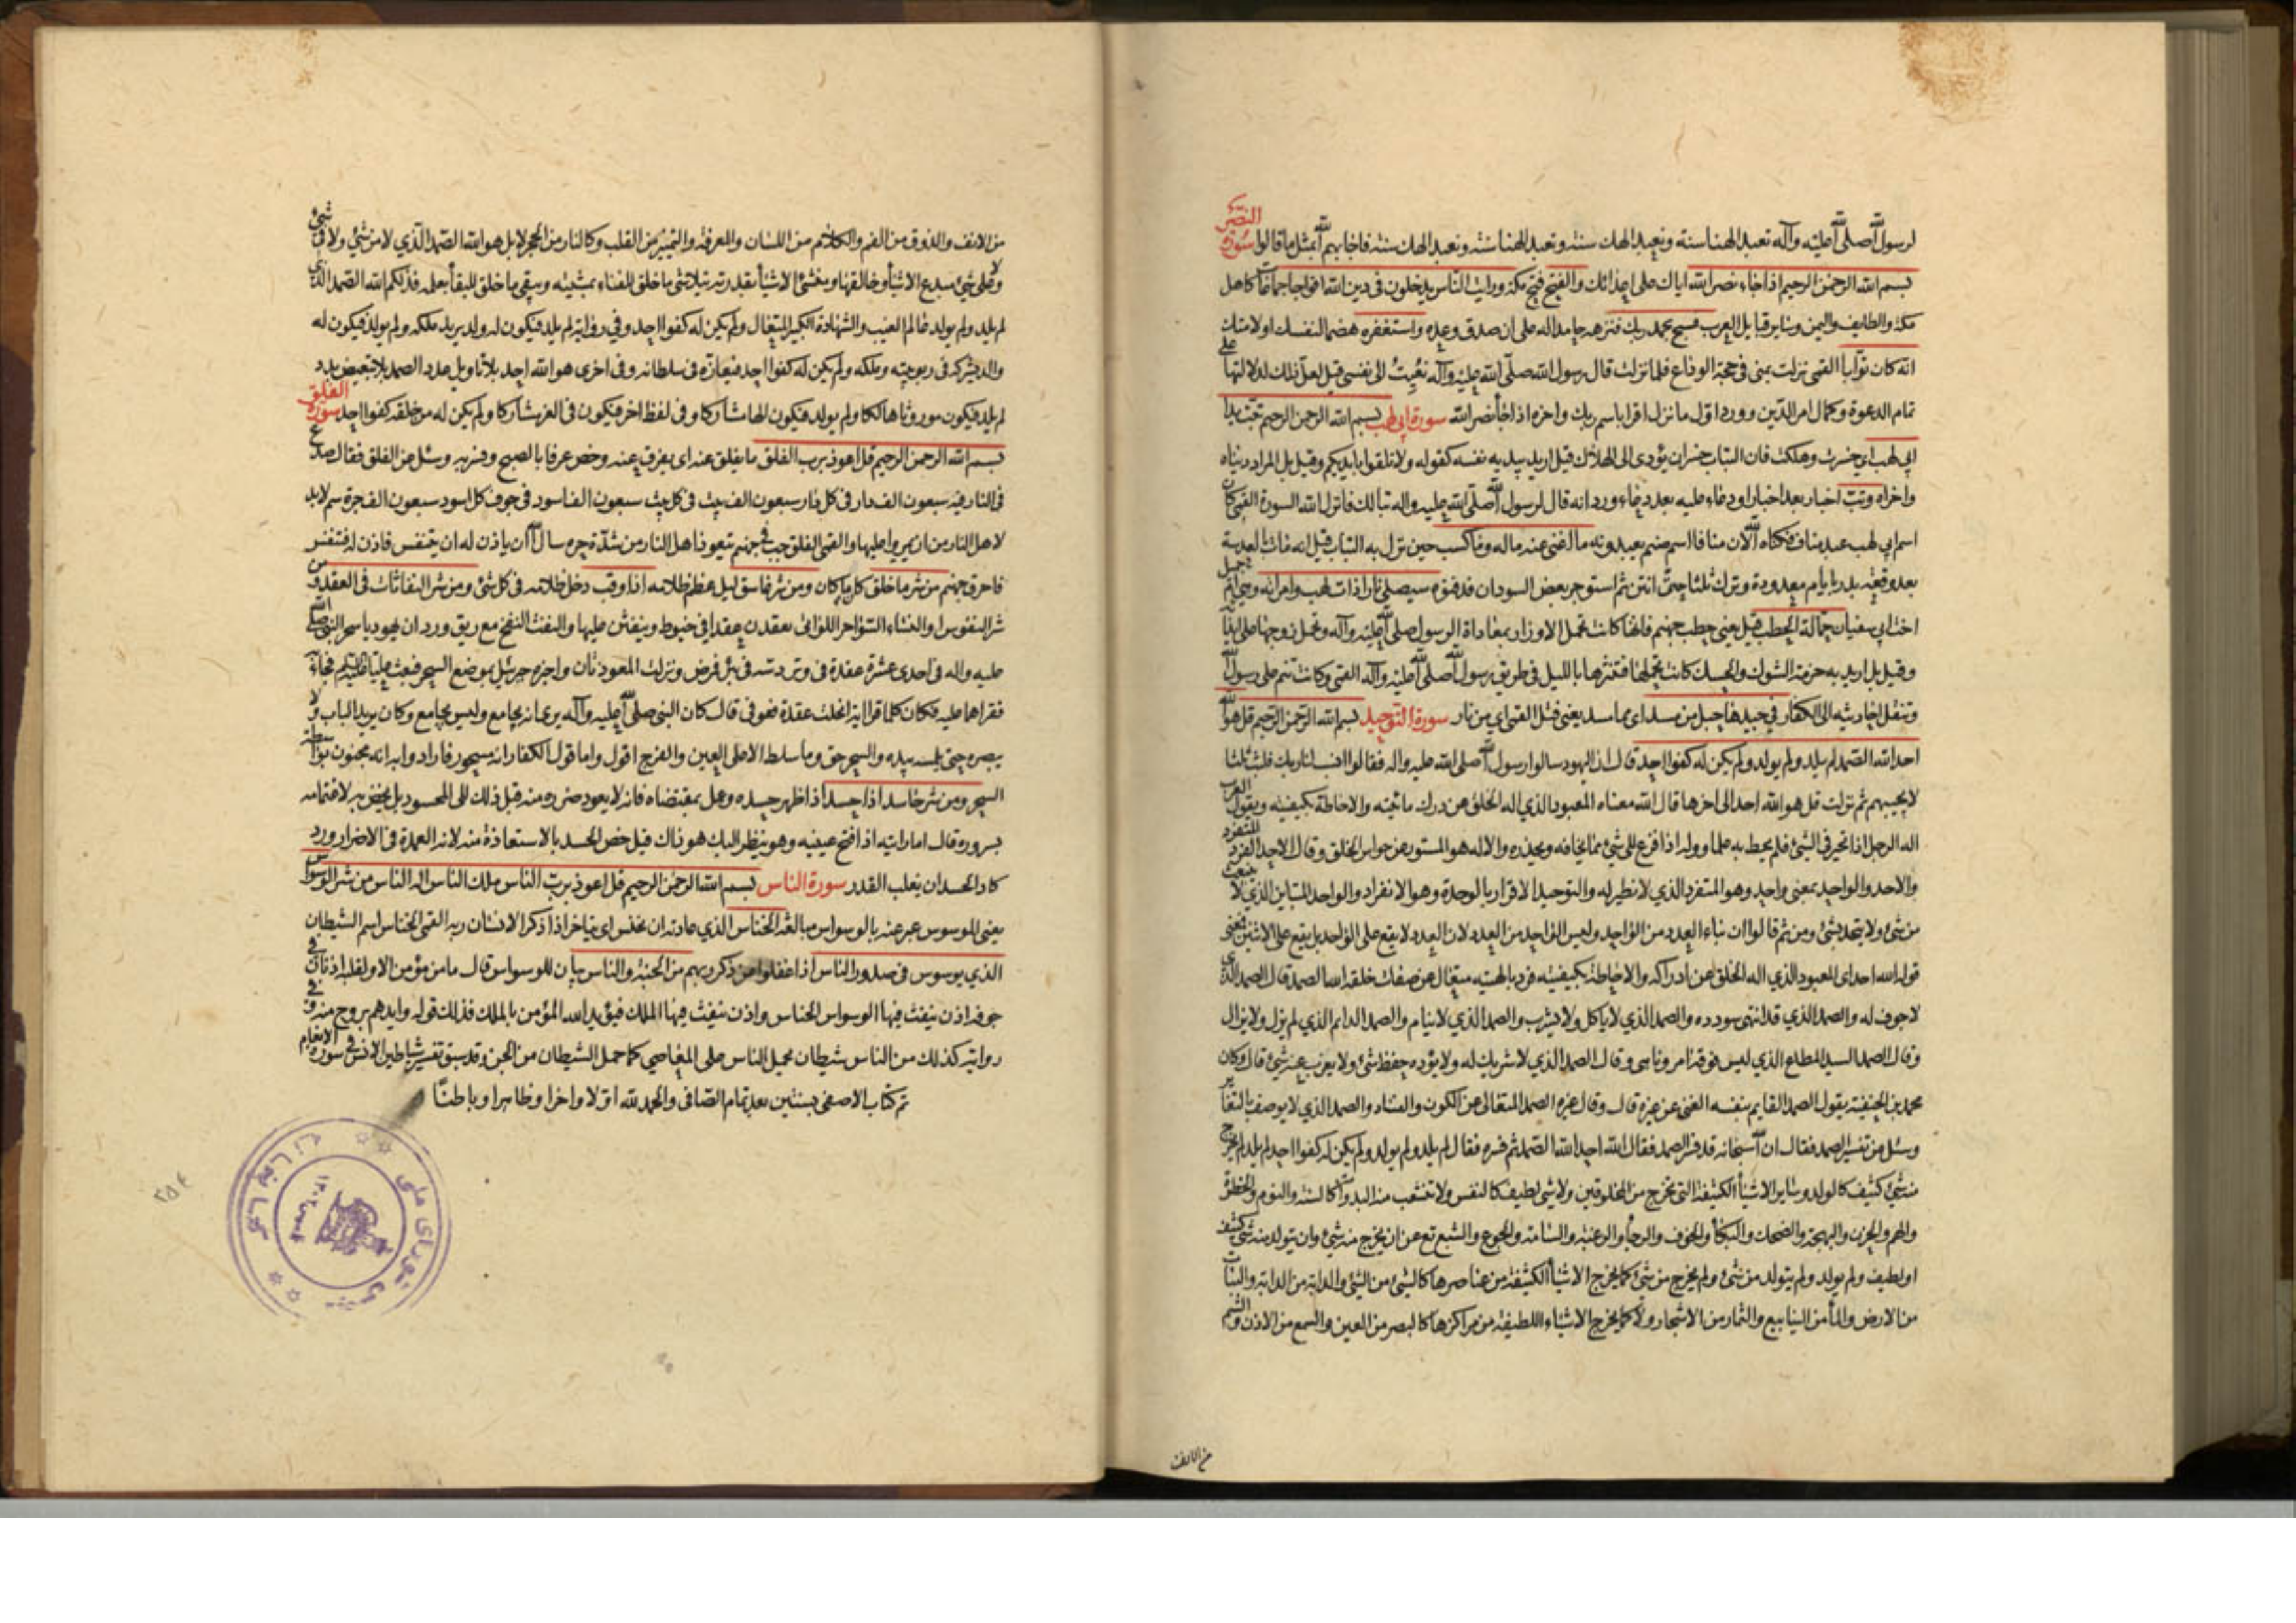 لرسول الله صلى الله عليه وآله تعبد الهنا سنة ونعبد الهك سنة وتعبد الهنا سنة ونعبد الهك سنة فاجابهم الله بمثل ما قالوا سورة النصر
بسم الله الرحمن الرحيم اذا جاء نصر الله اياك على اعدائك والفتح فتح مكة ورايت الناس يدخلون في دين الله افواجا جماعات كاهل
مكة والطايف واليمن وساير قبايل العرب فسبح بحمد ربك فنزهه حامدا له على ان صدق وعده واستغفره هضما لنفسك او لامتك
انه كان توابا القمى نزلت بمنى في حجة الوداع فلما نزلت قال رسول الله صلى الله عليه وآله نعيت الى نفسي قيل لعل ذلك لدلالتها على
تمام الدعوة وكمال امر الدين وورد اول ما نزل اقرا باسم ربك واخره اذا جاء نصر الله سورة ابي لهب بسم الله الرحمن الرحيم تبت يدا
ابي لهب اي خسرت وهلكت فان التباب خسران يؤدى الى الهلاك قيل اريد بيديه نفسه كقوله ولا تلقوا بايديكم وقيل بل المراد دنياه
واخراه وتب اخبار بعد اخبار او دعاء عليه بعد دعاء ورد انه قال لرسول الله صلى الله عليه واله تبا لك فانزل الله السورة القمى كان
اسم ابي لهب عبد مناف فكناه الله لان منافا اسم صنم يعبدونه ما اغنى عنه ماله وما كسب حين نزل به التباب قيل انه مات بالعدسة
بعد وقعة بدر بايام معدودة وترك ثلثا حتى انتن ثم استوجر بعض السودان فدفنوه سيصلى نارا ذات لهب وامراته وهي ام جميل
اخت ابي سفيان حمالة الحطب قيل يعني حطب جهنم فانها كانت تحمل الاوزار بمعاداة الرسول صلى الله عليه وآله وتحمل زوجها على ايذائه
وقيل بل اريد به حزمة الشوك والحسك كانت تحملها فتنثرها بالليل في طريق رسول الله صلى الله عليه وآله القمى وكانت تنم على رسول الله
وتنقل احاديثه الى الكفار في جيدها حبل من مسد اى مما مسد يعني فتل القمى اي من نار سورة التوحيد بسم الله الرحمن الرحيم قل هو الله
احد الله الصمد لم يلد ولم يولد ولم يكن له كفوا احد قال ان اليهود سالوا رسول الله صلى الله عليه واله فقالوا انسب لنا ربك فلبث ثلثا
لا يجيبهم ثم نزلت قل هو الله احد الى اخرها قال الله معناه المعبود الذي اله الخلق عن درك مائيته والاحاطة بكيفيته ويقول العرب
اله الرجل اذا تحير في الشيء فلم يحط به علما ووله اذا فزع الى شيء مما يخافه ويحذره والاله هو المستور عن حواس الخلق وقال الاحد الفرد المتفرد
والاحد والواحد بمعنى واحد وهو المتفرد الذي لا نظير له والتوحيد الاقرار بالوحدة وهو الانفراد والواحد المتباين الذي لا ينبعث
من شيء ولا يتحد بشيء ومن ثم قالوا ان بناء العدد من الواحد وليس الواحد من العدد لان العدد لا يقع على الواحد بل يقع على الاثنين فمعنى
قوله الله احد اى المعبود الذي اله الخلق عن ادراكه والاحاطة بكيفيته فرد بالهيته متعال عن صفات خلقه الله الصمد قال الصمد الذي
لا جوف له والصمد الذي قد انتهى سودده والصمد الذي لا ياكل ولا يشرب والصمد الذي لا ينام والصمد الدايم الذي لم يزل ولا يزال
وقال الصمد السيد المطاع الذي ليس فوقه آمر وناهي وقال الصمد الذي لا شريك له ولا يؤده حفظ شيء ولا يعزب عنه شيء قال وكان
محمد بن الحنفية يقول الصمد القايم بنفسه الغني عن غيره قال وقال غيره الصمد المتعالى عن الكون والفساد والصمد الذي لا يوصف بالتغاير
وسئل عن تفسير الصمد فقال ان الله سبحانه قد فسر الصمد فقال الله احد الله الصمد ثم فسره فقال لم يلد ولم يولد ولم يكن له كفوا احد لم يلد لم يخرج
منه شيء كثيف كالولد وساير الاشياء الكثيفة التي تخرج من المخلوقين ولا شيء لطيف كالنفس ولا تتشعب منه البدوات كالسنة والنوم والخطرة
والهم والحزن والبهجة والضحك والبكاء والخوف والرجاء والرغبة والسامة والجوع والشبع تع عن ان يخرج منه شيء وان يتولد منه شيء كثيف
او لطيف ولم يولد ولم يتولد من شيء ولم يخرج من شيء كما يخرج الاشياء الكثيفة من عناصرها كالشيء من الشيء والدابة من الدابة والنبات
من الارض والماء من الينابيع والثمار من الاشجار ولا كما يخرج الاشياء اللطيفة من مراكزها كالبصر من العين والسمع من الاذن والشم
من الانف
من الانف والذوق من الفم والكلام من اللسان والمعرفة والتميز من القلب وكالنار من الحجر لا بل هو الله الصمد الذي لا من شيء ولا في شيء
ولا على شيء مبدع الاشياء وخالقها ومنشئ الاشياء بقدرته يتلاشى ما خلق للفناء بمشيته ويبقى ما خلق للبقاء بعلمه فذلكم الله الصمد الذي
لم يلد ولم يولد عالم الغيب والشهادة الكبير المتعال ولم يكن له كفوا احد وفي رواية لم يلد فيكون له ولد يرثه ملكه ولم يولد فيكون له
والد يشركه في ربوبيته وملكه ولم يكن له كفوا احد فيعازه في سلطانه وفي اخرى هو الله احد بلا تاويل عدد الصمد بلا تبعيض بدد
لم يلد فيكون موروثا هالكا ولم يولد فيكون الها مشاركا وفي لفظ اخر فيكون في العز مشاركا ولم يكن له من خلقه كفوا احد سورة الفلق
بسم الله الرحمن الرحيم قل اعوذ برب الفلق ما يفلق عنه اى يفرق عنه وخص عرفا بالصبح وفسر به وسئل عن الفلق فقال صدع
في النار فيه سبعون الف دار في كل دار سبعون الف بيت في كل بيت سبعون الف اسود في جوف كل اسود سبعون الف جرة سم لا بد
لاهل النار من ان يمروا عليها والقمى الفلق جب في جهنم يتعوذ اهل النار من شدة حره سال الله ان ياذن له ان يتنفس فاذن له فتنفس
فاحرق جهنم من شر ما خلق كل ما كان ومن شر غاسق ليل عظم ظلامه اذا وقب دخل ظلامه في كل شيء ومن شر النفاثات في العقد ومن
شر النفوس او النساء السواحر اللواتى يعقدن عقدا في خيوط وينفثن عليها والنفث النفخ مع ريق ورد ان يهوديا سحر النبي صلى الله
عليه واله في احدى عشرة عقدة في وتر دسه في بئر فرض ونزلت المعوذتان واخبره جبرئيل بموضع السحر فبعث عليا عليه السلم فجاء به
فقراهما عليه فكان كلما قرا اية انحلت عقدة فعوفي قال كان النبي صلى الله عليه وآله يرى انه يجامع وليس يجامع وكان يريد الباب ولا
يبصره حتى يلمسه بيده والسحر حق وما سلط الا على العين والفرج اقول واما قول الكفار انه مسحور فارادوا به انه مجنون بواسطة
السحر ومن شر حاسد اذا حسد اذا اظهر حسده وعمل بمقتضاه فانه لا يعود ضرره منه قبل ذلك الى المحسود بل يخص به لاغتمامه
بسروره قال اما رايته اذا فتح عينيه وهو ينظر اليك هو ذاك قيل خص الحسد بالاستعاذة منه لانه العمدة في الاضرار ورد
كاد الحسد ان يغلب القدر سورة الناس بسم الله الرحمن الرحيم قل اعوذ برب الناس ملك الناس اله الناس من شر الوسواس
يعنى الموسوس عبر عنه بالوسواس مبالغة الخناس الذي عادته ان يخنس اى يتاخر اذا ذكر الانسان ربه القمى الخناس اسم الشيطان
الذي يوسوس في صدور الناس اذا غفلوا عن ذكر ربهم من الجنة والناس بيان للوسواس قال ما من مؤمن الا ولقلبه اذنان في
جوفه اذن ينفث فيها الوسواس الخناس واذن ينفث فيها الملك فيؤيد الله المؤمن بالملك فذلك قوله وايدهم بروح منه وفي
رواية كذلك من الناس شيطان يحمل الناس على المعاصي كما حمل الشيطان من الجن وقد سبق تفسير شياطين الانس في سورة الانعام
تم كتاب الاصفى بسنتين بعد تمام الصافى والحمد لله اولا واخرا وظاهرا وباطنا